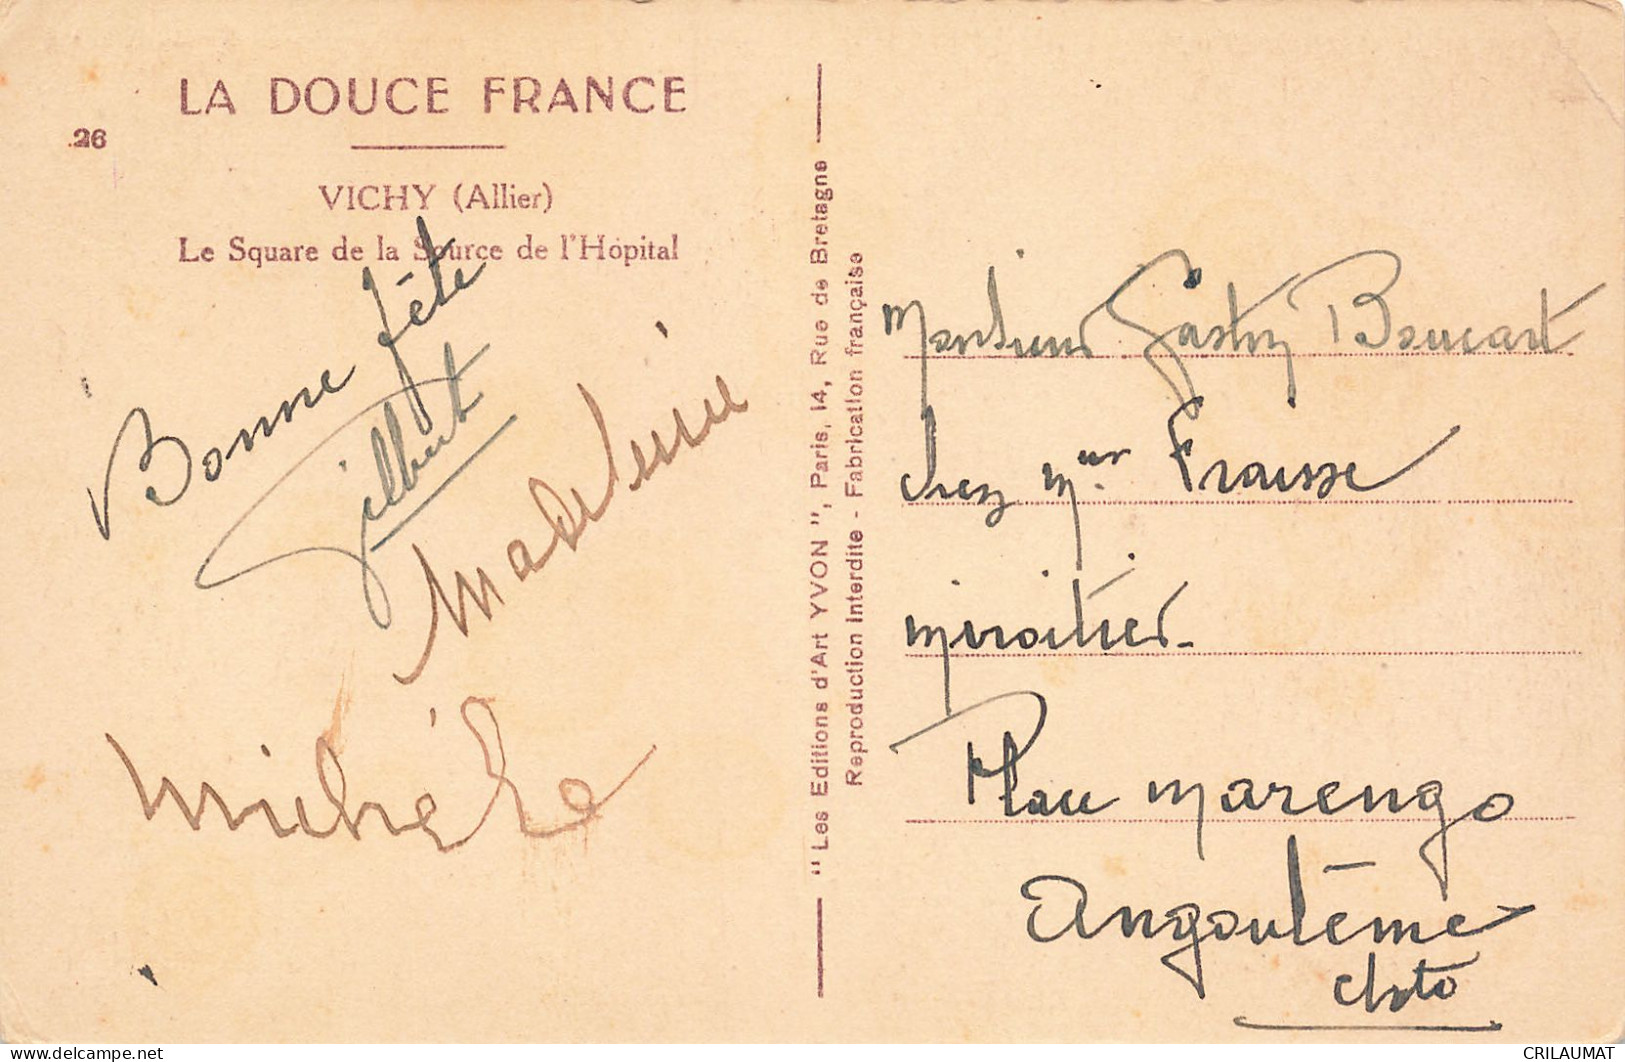 LA DOUCE FRANCE
26
VICHY (Allier)
Le Square de la Source de l'Hôpital
Bonne fête
Gilbert
Madeleine
Michéle
"Les Editions d'Art YVON", Paris, 14, Rue de Bretagne
Reproduction Interdite - Fabrication française
Monsieur Gaston Boucart
chez Mr Fraisse
miroitier.
Place Marengo
Angoulême
chte
CRILAUMAT